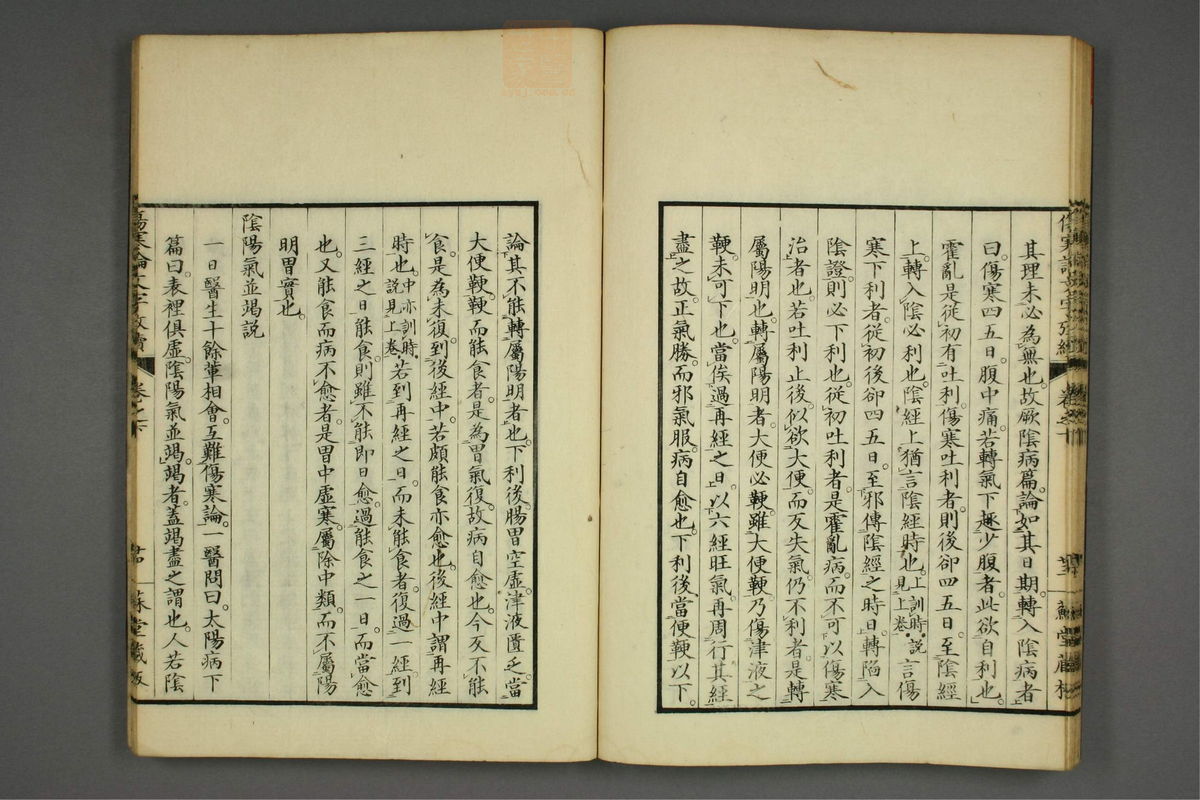 其理未必為無也。故厥陰病篇論如其日期轉入陰病者
曰。傷寒四五日。腹中痛。若轉氣下趣少腹者。此欲自利也。
霍亂是從初有吐利。傷寒吐利者。則後卻四五日。至陰經
上。轉入陰必利也。陰經上猶言陰經時也。上訓時。說見上卷。言傷
寒下利者。從初後卻四五日。至邪傳陰經之時日。轉陷入
陰證。則必下利也。從初吐利者。是霍亂病。而不可以傷寒
治者也。若吐利止後。似欲大便。而反失氣。仍不利者。是轉
屬陽明也。轉屬陽明者。大便必鞕。雖大便鞕。乃傷津液之
鞕。未可下也。當俟過再經之日。以六經旺氣再周行其經
盡之故。正氣勝。而邪氣服。病自愈也。下利後。當便鞕以下。
論其不能轉屬陽明者也。下利後。腸胃空虛。津液匱乏。當
大便鞕。鞕而能食者。是為胃氣復。故病自愈也。今反不能
食。是為未復。到後經中。若頗能食亦愈也。後經中謂再經
時也。中亦訓時。說見上卷。若到再經之日。而未能食者。復過一經。到
三經之日能食。則雖不能即日愈。過能食之一日而當愈
也。又能食而病不愈者。是胃中虛寒。屬除中類。而不屬陽
明胃實也。
陰陽氣並竭說
一日醫生十餘輩相會。互難傷寒論。一醫問曰。太陽病下
篇曰。表裡俱虛。陰陽氣並竭。竭者。蓋竭盡之謂也。人若陰